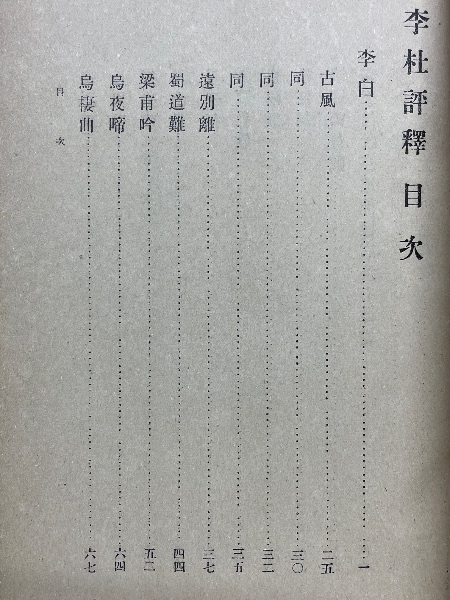 李杜評釋目次
李白……一
古風……二五
同……三〇
同……三二
同……三五
遠別離……三七
蜀道難……四四
梁甫吟……五二
烏夜啼……六四
烏棲曲……六七
目次